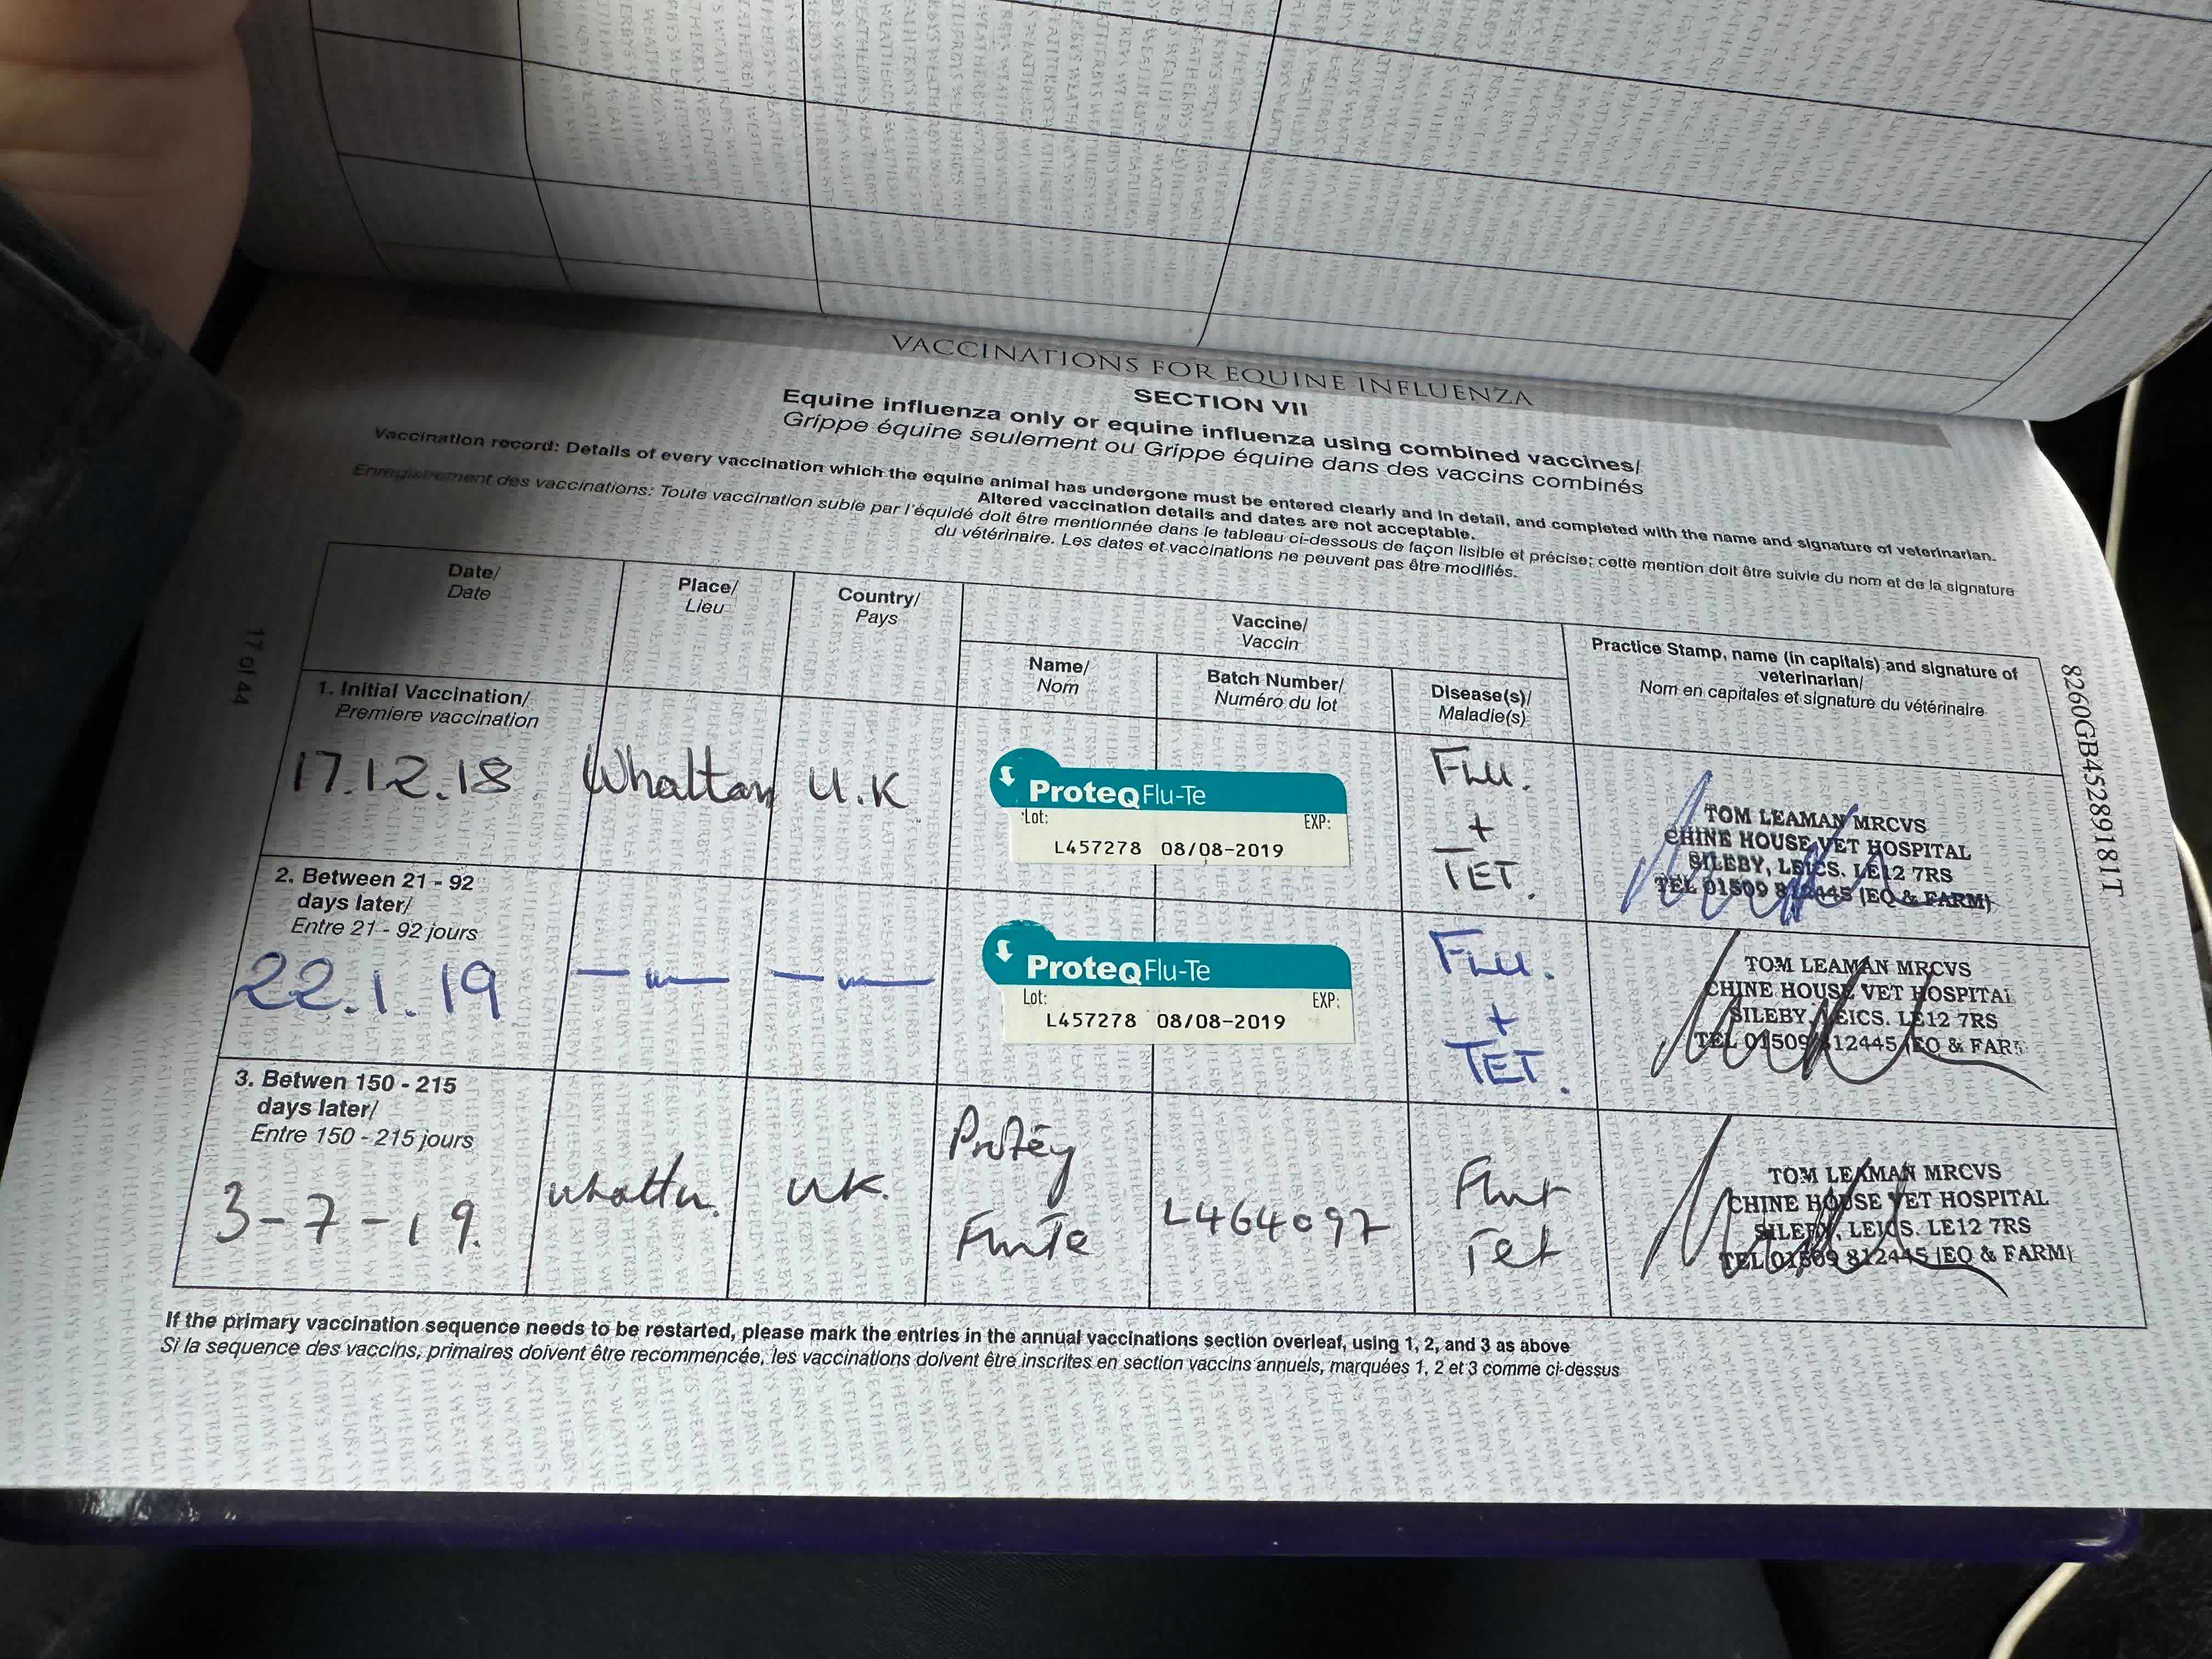 VACCINATIONS FOR EQUINE INFLUENZA
SECTION VII
Equine influenza only or equine influenza using combined vaccines/
Grippe équine seulement ou Grippe équine dans des vaccins combinés
Vaccination record: Details of every vaccination which the equine animal has undergone must be entered clearly and in detail, and completed with the name and signature of veterinarian.
Altered vaccination details and dates are not acceptable.
Enregistrement des vaccinations: Toute vaccination subie par l'équidé doit être mentionnée dans le tableau ci-dessous de façon lisible et précise; cette mention doit être suivie du nom et de la signature
du vétérinaire. Les dates et vaccinations ne peuvent pas être modifiés.
17 of 44
8260GB45289181T
Date/
Date
Place/
Lieu
Country/
Pays
Vaccine/
Vaccin
Name/
Nom
Batch Number/
Numéro du lot
Disease(s)/
Maladie(s)
Practice Stamp, name (in capitals) and signature of
veterinarian/
Nom en capitales et signature du vétérinaire
1. Initial Vaccination/
Premiere vaccination
17.12.18
Whatton
U.K
ProteqFlu-Te
Lot:
EXP:
L457278 08/08-2019
FLU.
+
TET.
TOM LEAMAN MRCVS
CHINE HOUSE VET HOSPITAL
SILEBY, LEICS. LE12 7RS
TEL 01509 812445 (EQ & FARM)
2. Between 21 - 92
days later/
Entre 21 - 92 jours
22.1.19
ProteqFlu-Te
Lot:
EXP:
L457278 08/08-2019
FLU.
+
TET.
TOM LEAMAN MRCVS
CHINE HOUSE VET HOSPITAL
SILEBY, LEICS. LE12 7RS
TEL 01509 812445 (EQ & FARM
3. Betwen 150 - 215
days later/
Entre 150 - 215 jours
3-7-19.
Whatton.
UK.
Proteq
FluTe
L464097
Flu+
Tet
TOM LEAMAN MRCVS
CHINE HOUSE VET HOSPITAL
SILEBY, LEICS. LE12 7RS
TEL 01509 812445 (EQ & FARM)
If the primary vaccination sequence needs to be restarted, please mark the entries in the annual vaccinations section overleaf, using 1, 2, and 3 as above
Si la sequence des vaccins, primaires doivent être recommencée, les vaccinations doivent être inscrites en section vaccins annuels, marquées 1, 2 et 3 comme ci-dessus